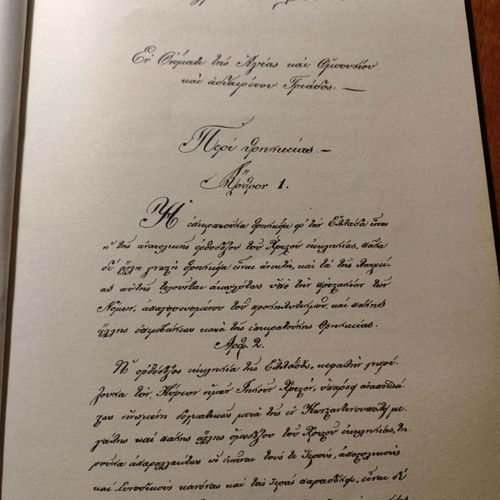 Ἐν Ὀνόματι τῆς Ἁγίας καὶ Ὁμοουσίου
καὶ ἀδιαιρέτου Τριάδος.—
Περὶ θρησκείας.—
Ἄρθρον 1.
Ἡ ἐπικρατοῦσα θρησκεία εἰς τὴν Ἑλλάδα εἶναι
ἡ τῆς ἀνατολικῆς ὀρθοδόξου τοῦ Χριστοῦ ἐκκλησίας, πᾶσα
δὲ ἄλλη γνωστὴ θρησκεία εἶναι ἀνεκτή, καὶ τὰ τῆς λατρείας
αὐτῆς τελοῦνται ἀκωλύτως ὑπὸ τὴν προστασίαν τῶν
Νόμων, ἀπαγορευομένου τοῦ προσηλυτισμοῦ, καὶ πάσης
ἄλλης ἐπεμβάσεως κατὰ τῆς ἐπικρατούσης θρησκείας.
Ἄρθρ. 2.
Ἡ ὀρθόδοξος ἐκκλησία τῆς Ἑλλάδος, κεφαλὴν γνωρί-
ζουσα τὸν Κύριον ἡμῶν Ἰησοῦν Χριστόν, ὑπάρχει ἀναποσπά-
στως ἡνωμένη δογματικῶς μετὰ τῆς ἐν Κωνσταντινουπόλει με-
γάλης καὶ πάσης ἄλλης ὁμοδόξου τοῦ Χριστοῦ ἐκκλησίας, τη-
ροῦσα ἀπαραλλάκτως ὡς ἐκεῖναι τούς τε ἱερούς, ἀποστολικοὺς
καὶ Συνοδικοὺς κανόνας καὶ τὰς ἱερὰς παραδόσεις, εἶναι δὲ